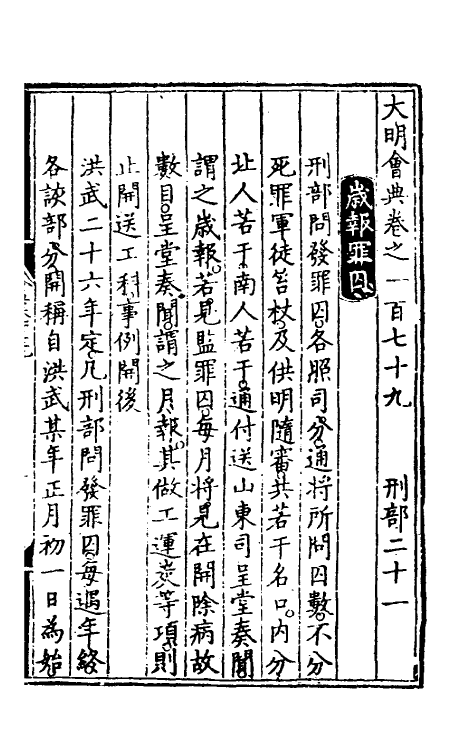 大明會典卷之一百七十九 刑部二十一
歲報罪囚
刑部問發罪囚各照司分通將所問囚數不分
死罪軍徒笞杖及供明隨審共若干名口內分
北人若干南人若干通付送山東司呈堂奏聞
謂之歲報若見監罪囚每月將見在開除病故
數目呈堂奏聞謂之月報其做工運炭等項則
止開送工科事例開後
洪武二十六年定凡刑部問發罪囚每遇年終
各該部分開稱自洪武某年正月初一日為始